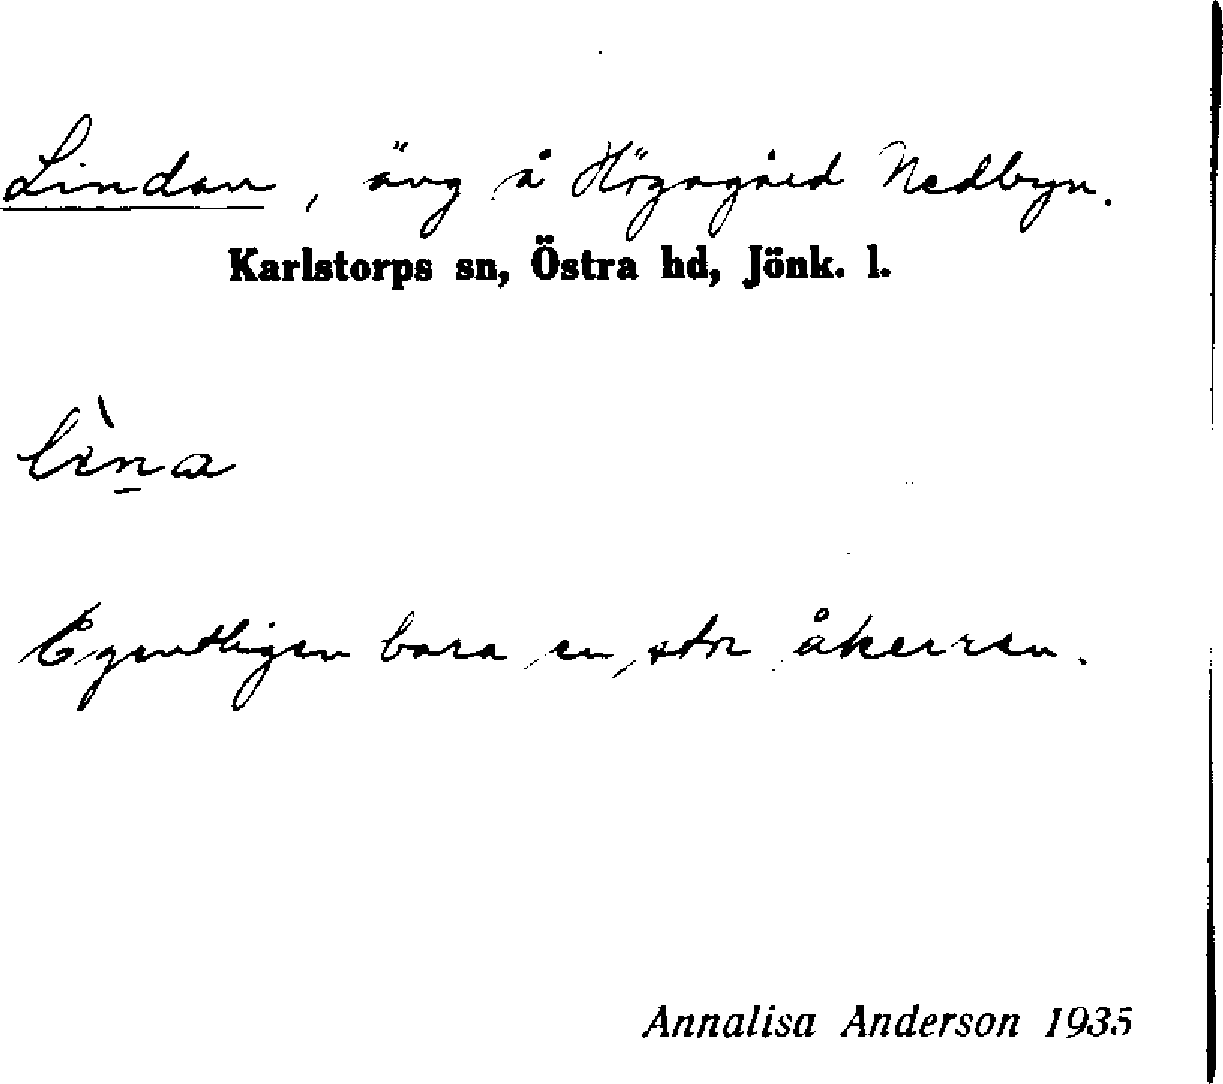 Lindan, äng å Högagärd Nedbyn.
Karlstorps sn, Östra hd, Jönk. l.
lìna
Egentligen bara en stor åkerren.
Annalisa Anderson 1935